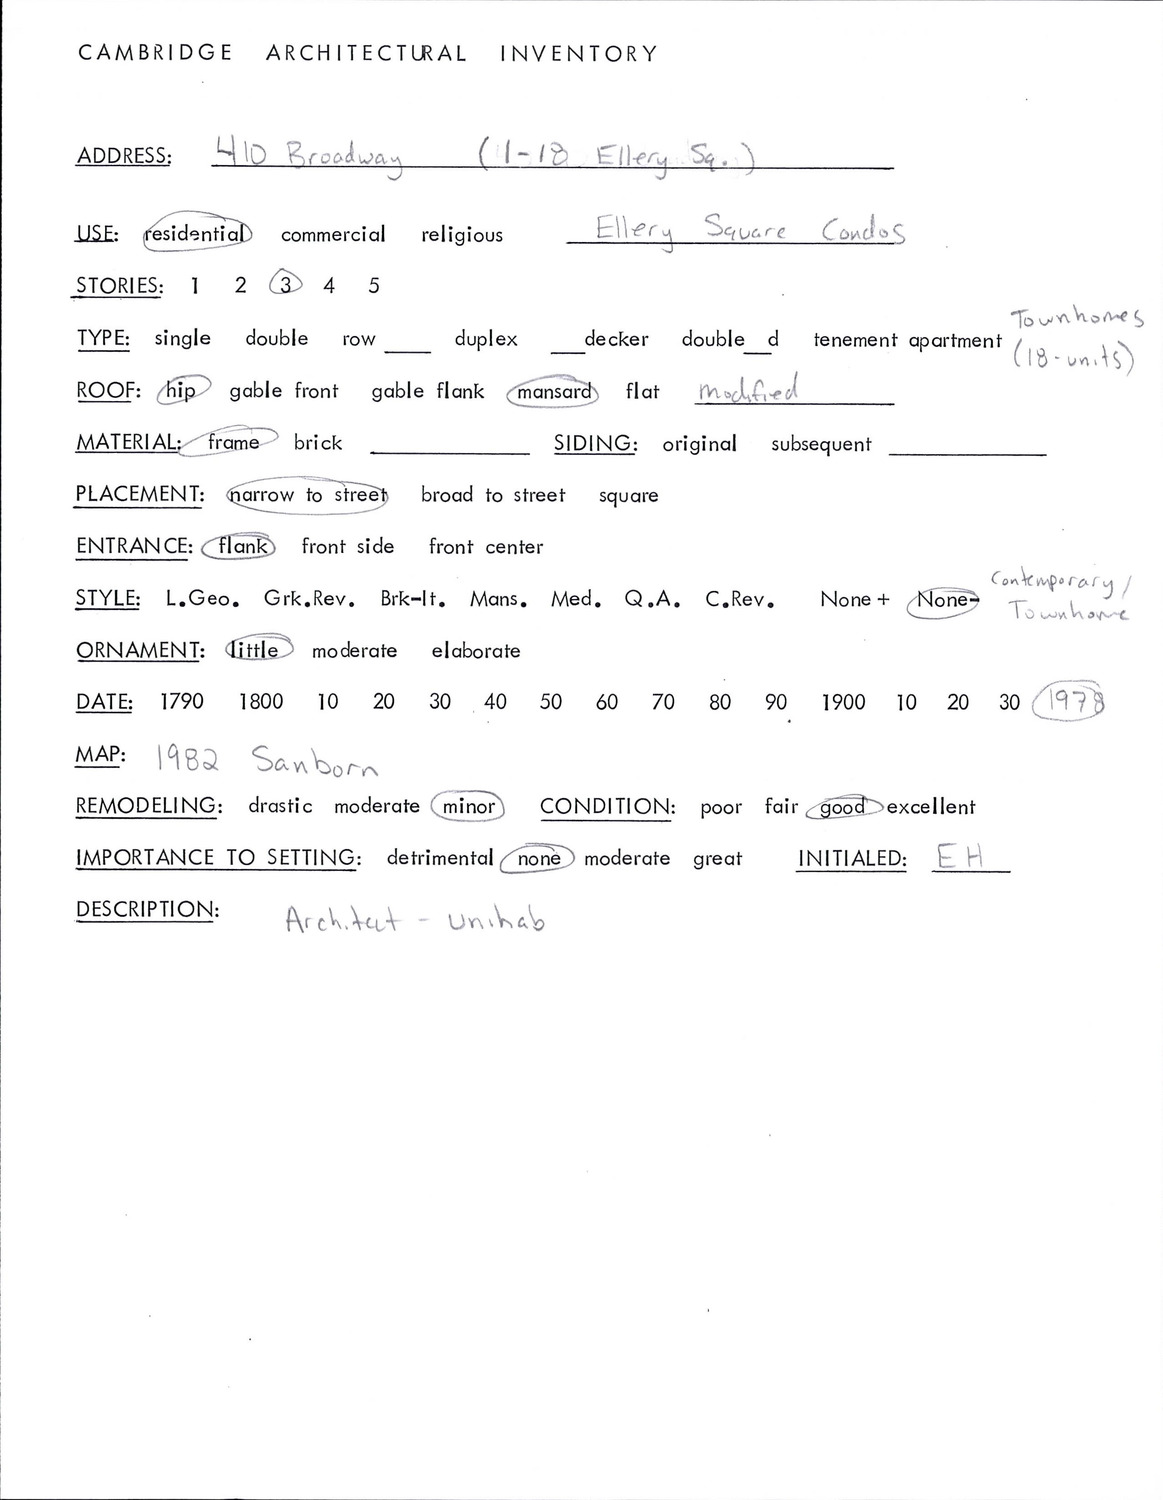 CAMBRIDGE ARCHITECTURAL INVENTORY
ADDRESS: 410 Broadway (1-18 Ellery Sq.)
USE: residential commercial religious Ellery Square Condos
STORIES: 1 2 3 4 5
TYPE: single double row ____ duplex ___decker double__d tenement apartment Townhomes (18-units)
ROOF: hip gable front gable flank mansard flat modified
MATERIAL: frame brick ____ SIDING: original subsequent ____
PLACEMENT: narrow to street broad to street square
ENTRANCE: flank front side front center
STYLE: L.Geo. Grk.Rev. Brk-It. Mans. Med. Q.A. C.Rev. None+ None- Contemporary / Townhome
ORNAMENT: little moderate elaborate
DATE: 1790 1800 10 20 30 40 50 60 70 80 90 1900 10 20 30 1978
MAP: 1982 Sanborn
REMODELING: drastic moderate minor CONDITION: poor fair good excellent
IMPORTANCE TO SETTING: detrimental none moderate great INITIALED: EH
DESCRIPTION: Architect - Unihab